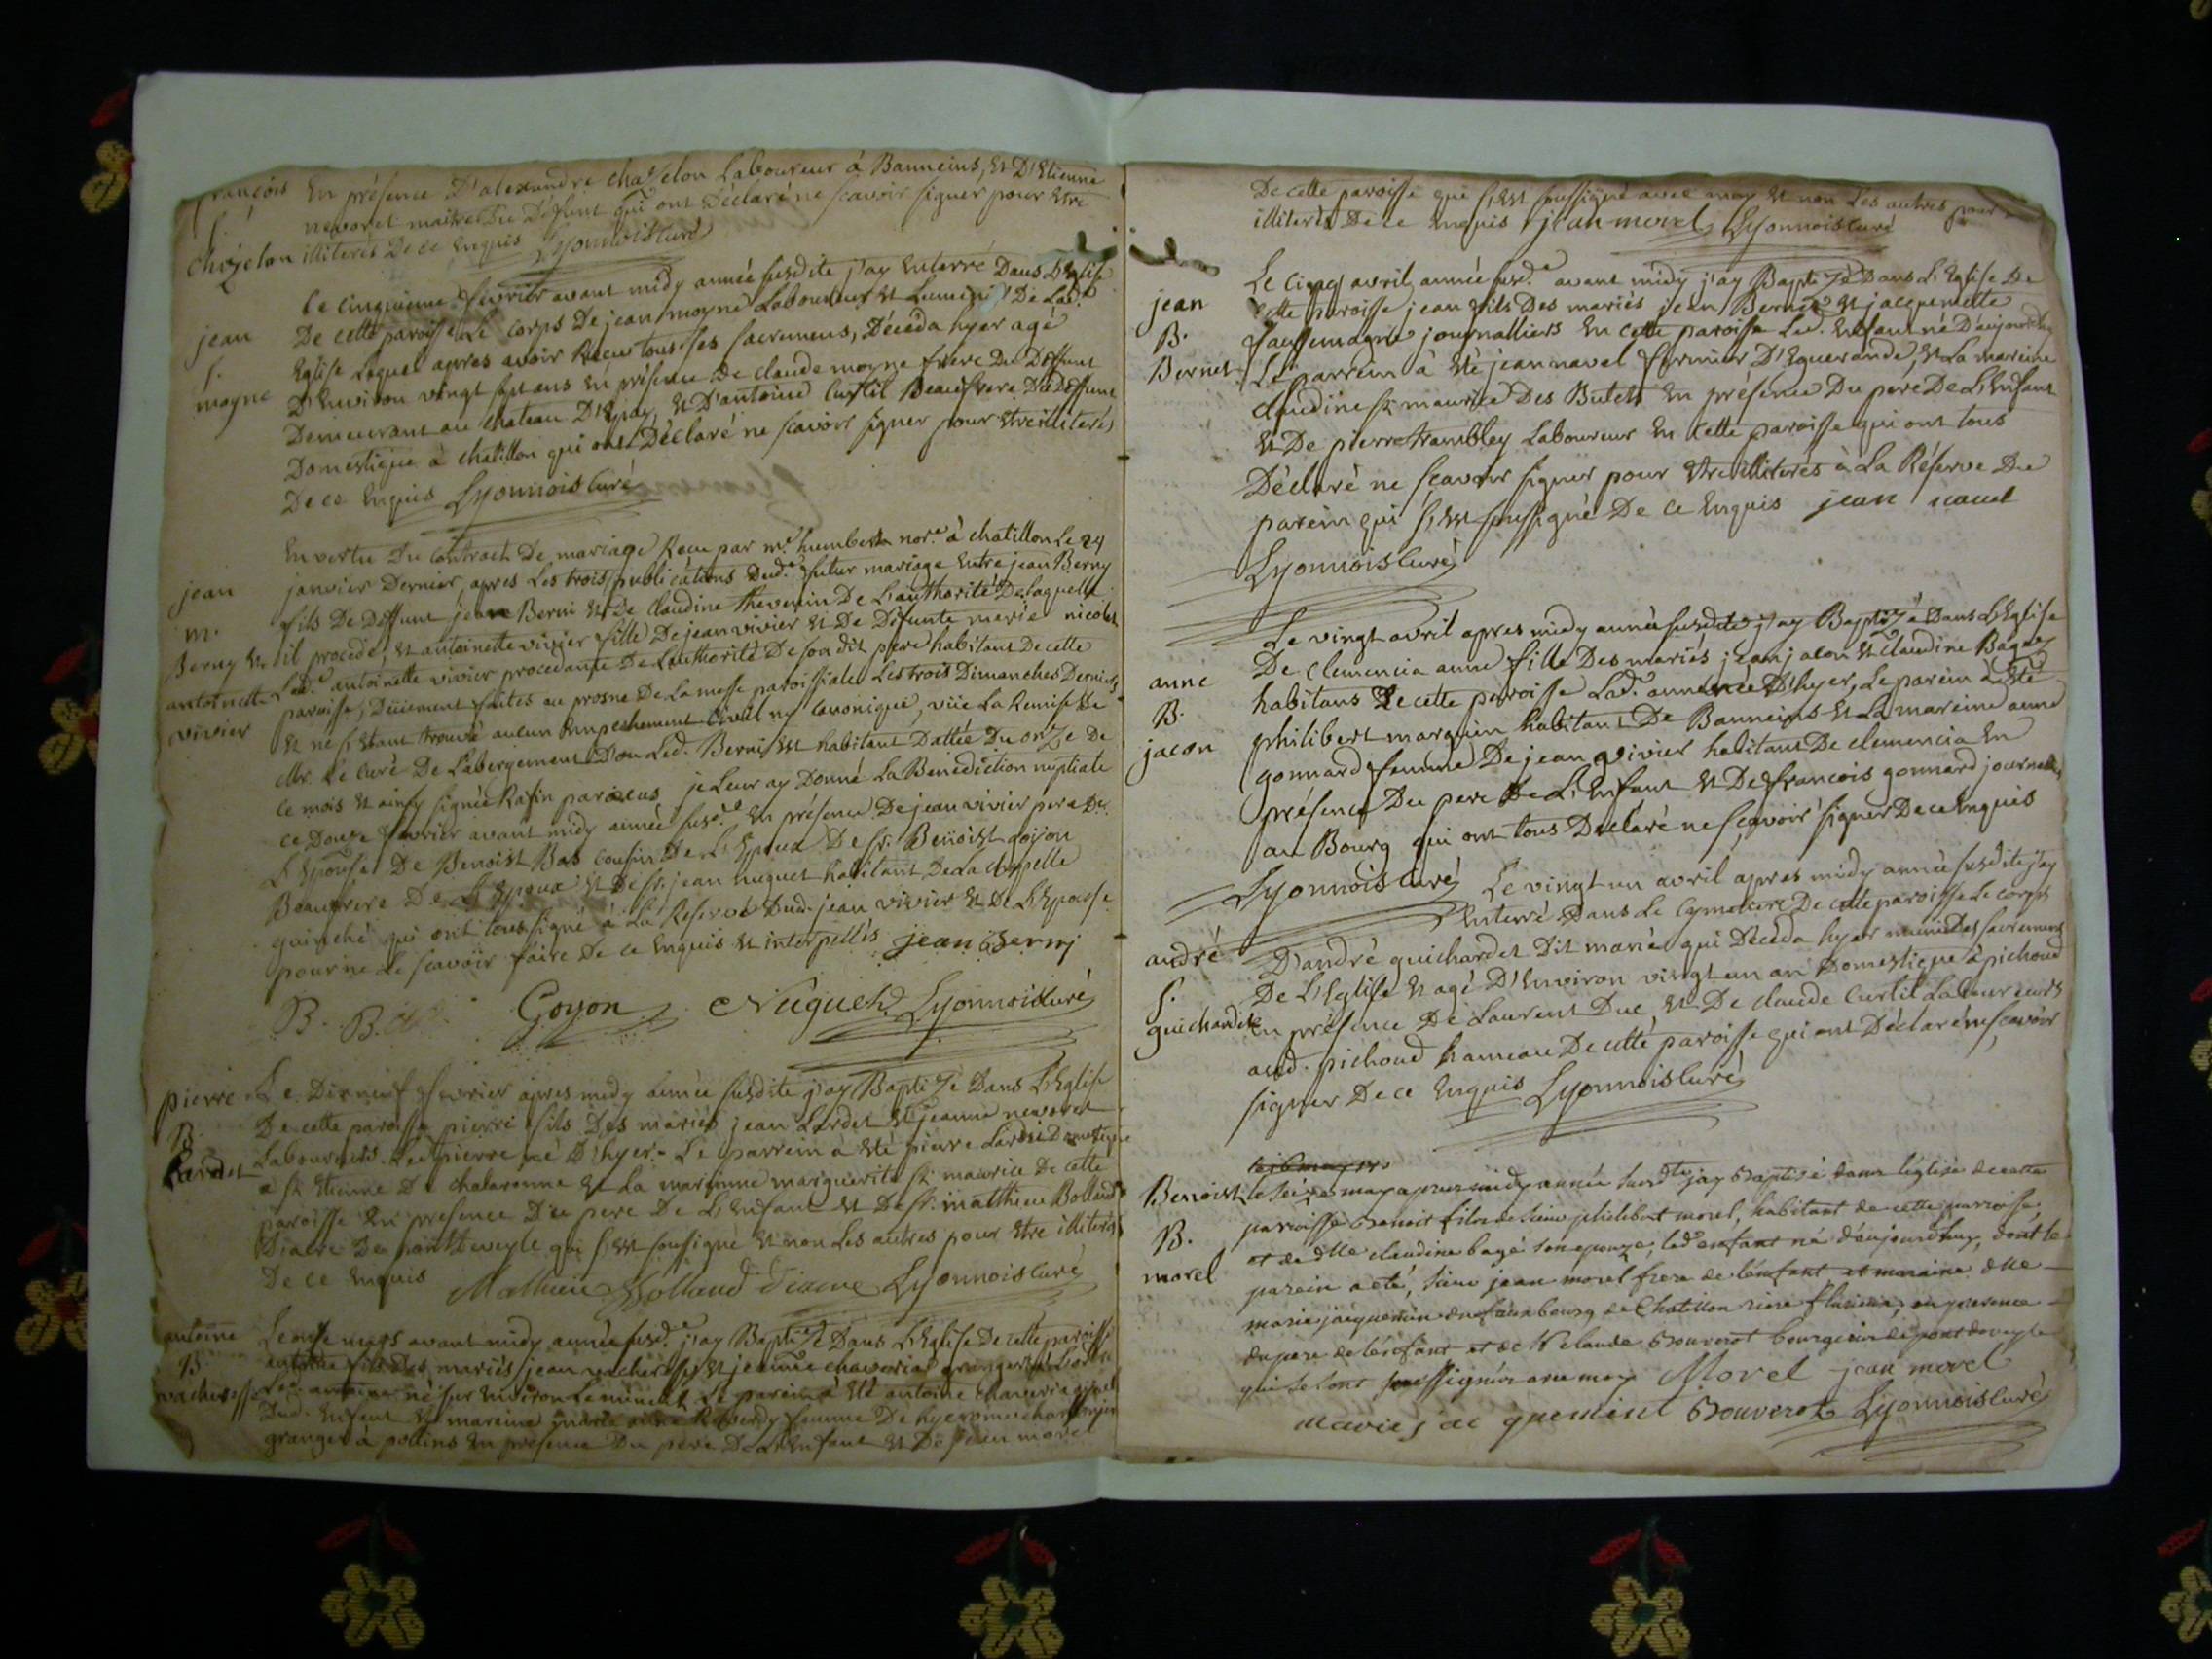 françois
S.
chazelon
En présence D'alexandre chazelon Laboureur à Banneins, Et D'Etienne
nevoret maitre Du Défunt qui ont Déclaré ne scavoir signer pour Etre
illiterés De ce Enquis Lyonnois curé
jean
S.
moyne
Le cinquieme fevrier avant midy année susdite j'ay Enterré Dans L'Eglise
De cette paroisse Le corps De jean moyne Laboureur Et De Lad.
Eglise Lequel apres avoir Recu tous ses sacremens, Décéda hyer agé
D'Environ vingt sept ans En présence De claude moyne frere Du Deffunt
Demeurant au chateau D'Epay, Et D'antoine Curtil Beaufrere Du Deffunt
Domestique à chatillon qui ont Déclaré ne scavoir signer pour Etre illiterés
De ce Enquis Lyonnois Curé
jean
m.
Berny Et
antoinette
vivier
En vertu Du Contract De mariage Recu par me. humbert nore. à chatillon Le 24
janvier Dernier, apres Les trois publications Dud. futur mariage Entre jean Berny
fils De Deffunt jean Berni Et De Claudine thevenin De L'authorité De Laquelle
il procede, Et antoinette vivier fille De jean vivier Et De Défunte marie nicolas
Lad. antoinette vivier procedante De Lauthorité De son dit pere habitant De cette
paroisse, Düement faites au prosne De La messe paroissiale Les trois Dimanches Derniers
Et ne s'Etant trouvé aucun Empechement Civil ny Canonique, vüe La Remise De
Mr. Le curé De Labergement D'ou Led. Berni Est habitant Dattée Du onze De
ce mois Et ainsy signée Rafin je Leur ay Donné La Benediction nuptiale
ce Douze fevrier avant midy année susd. En présence De jean vivier pere De
L'Epouse De Benoist Bas cousin De L'Epoux De Sr. Benoist goyon
Beaufrere De L'Epoux Et De Sr. jean nuguet habitant De La chapelle
guinché qui ont tous signé à La Reserve Dud. jean vivier Et De L'Epouse
pour ne Le scavoir faire De ce Enquis Et interpellés jean Berny
B. Bas Goyon Nuguet Lyonnois curé
pierre
B.
Lardet
Le Dixneuf fevrier apres midy année susdite j'ay Baptizé Dans L'Eglise
De cette paroisse pierre fils Des mariés jean Lardet Et jeanne nevoret
Laboureurs Led. pierre né D'hyer. Le parrein à Eté pierre Lardet Domestique
a St Etienne De chalaronne Et La mareinne marguerite St maurice De cette
paroisse En presence Du pere De L'Enfant Et De Sr. matthieu Bolland
Diacre De pontdeveyle qui s'Est sousigné Et non Les autres pour Etre illiterés
De ce Enquis Mathieu Bolland diacre Lyonnois curé
antoine
B.
vacheresse
Le onze mars avant midy année susd. j'ay Baptizé Dans L'Eglise De cette paroisse
antoine fils Des mariés jean vacheresse Et jeanne
Led. antoine né sur Environ Le parein à Eté antoine
Dud. Enfant Et mareine marie femme De hyerome
granger à pollins En présence Du pere De L'Enfant Et De jean morel
De cette paroisse qui s'Est soussigné avec moy Et non Les autres pour
illiterés De ce Enquis jean morel Lyonnois curé
jean
B.
Bernet
Le cinq avril année susd. avant midy j'ay Baptizé Dans L'Eglise De
cette paroisse jean fils Des mariés jean Bernet Et jacquemette
journalliers En cette paroisse Led. Enfant né D'aujourdhuy
Le parrein à Eté jean navel fermier D'Eguerande, Et La mareine
claudine St maurice Des Butets En présence Du pere De L'Enfant
Et De pierre trambley Laboureur En cette paroisse qui ont tous
Déclaré ne scavoir signer pour Etre illiterés à La Réserve Du
parein qui s'Est soussigné De ce Enquis jean navel
Lyonnois Curé
anne
B.
jacon
Le vingt avril apres midy année susdite j'ay Baptizé Dans L'Eglise
De Clemencia anne fille Des mariés jean jacon Et Claudine Bagey
habitans De cette paroisse Lad. anne née D'hyer, Le parein à Eté
philibert marguin habitant De Banneins Et La mareine anne
gonnard femme De jean vivier habitant De clemencia En
présence Du pere De L'Enfant Et De francois gonnard journallier
au Bourg qui ont tous Declaré ne scavoir signer De ce Enquis
Lyonnois curé
andré
S.
guichardet
Le vingt un avril apres midy année susdite j'ay
Enterré Dans Le Cymetiere De cette paroisse Le corps
D'andré guichardet Dit marie qui Décéda hyer muni Des sacremens
De L'Eglise Et agé D'Environ vingt un an Domestique à pichoud
En présence De Laurent Duc Et De claude Curtil Laboureurs
aud. pichoud hameau De cette paroisse qui ont Déclaré ne scavoir
signer De ce Enquis Lyonnois Curé
Benoist
B.
morel
le seize may apres midy année susdte jay baptisé dans l'église de cette
parroisse benoit fils de sieur philibert morel, habitant de cette parroisse,
et de dlle claudine bagé son epouze, led enfant né d'aujourdhuy, dont le
parein a eté, sieur jean morel frere de l'enfant et maraine dlle
marie jacquemin du fauxbourg de Chatillon riere flurieux, en presence
du pere de l'enfant et de Sr claude bouverot bourgeois de pont de veyle
qui se sont soussignés avec moy Morel jean morel
marie jacquemint Bouverot Lyonnois curé